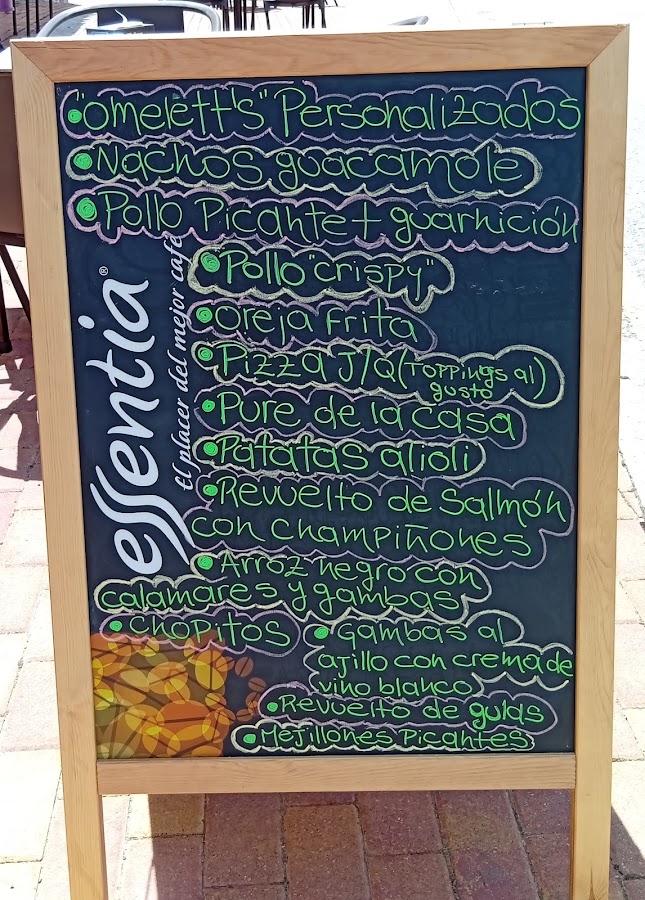 • "omelett's" Personalizados
• Nachos guacamole
• Pollo Picante + guarnición
• Pollo "crispy"
• oreja Frita
• Pizza J/Q (Toppings al)
gusto
• Pure de la casa
• Patatas alioli
• Revuelto de Sallmón
con champiñones
• Arroz negro con
calamares y gambas
• chopitos
• gambas al
ajillo con crema de
vino blanco
• Revuelto de gulas
• Mejillones Picantes
essentia®
El placer del mejor café